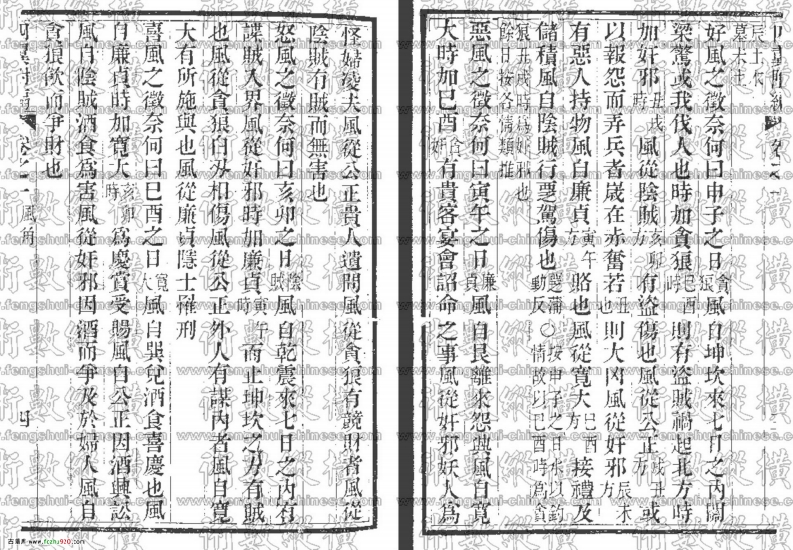 好風之徵奈何曰申子之日貪狼風自坤坎來七日之內關
梁驚或我伐人也時加貪狼巳酉時則有盜賊禍起北方時
加奸邪丑戌時風從陰賊亥卯方有盜傷也風從公正戌丑方或
以報怨而弄兵者歲在赤奮若丑也則大凶風從奸邪辰未方
有惡人持物風自廉貞寅午方賂也風從寬大巳酉方接禮及
儲積風自陰賊行惡駕傷也
惡風之徵奈何曰寅午之日廉貞風自艮離來怨興風自寬
大時加巳酉有貴客宴會詔命之事風從奸邪妖人為
怪婦凌夫風從公正貴人遺問風從貪狼有競財者風從
陰賊有賊而無害也
怒風之徵奈何曰亥卯之日陰賊風自乾震來七日之內有
諜賊入界風從奸邪時加廉貞寅午時而止坤坎之方有賊
也風從貪狼白刃相傷風從公正外人有謀內者風自寬
大有所施與也風從廉貞隱士罹刑
喜風之徵奈何曰巳酉之日寬大風自巽兌酒食喜慶也風
自廉貞時加寬大亥卯時為慶賞受賜風自公正因酒興訟
風自陰賊酒食為害風從奸邪因酒而爭及於婦人風自
貪狼飲而爭財也
卷之一 風角
四
術數縱橫
.fengshui-chinese.com
古籍库-www.fczhu920.com